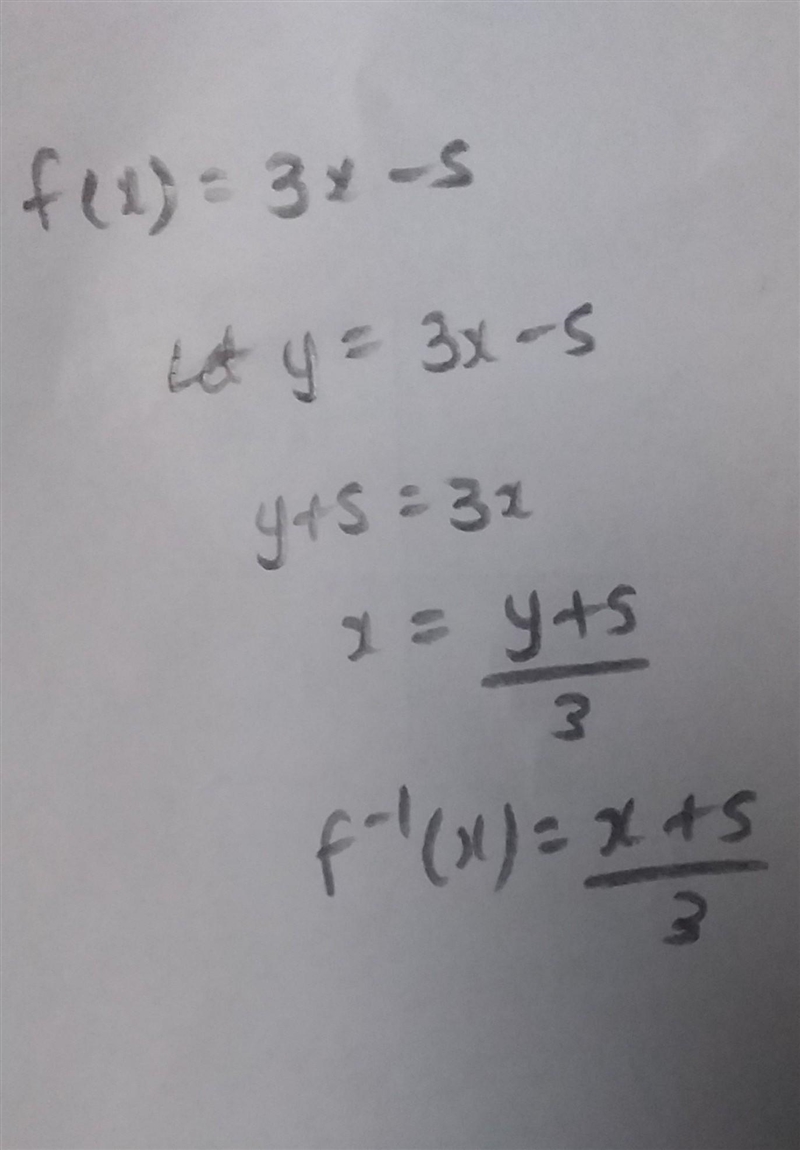 f(x) = 3x - 5
Let y = 3x - 5
y + 5 = 3x
x = (y + 5)/3
f⁻¹(x) = (x + 5)/3